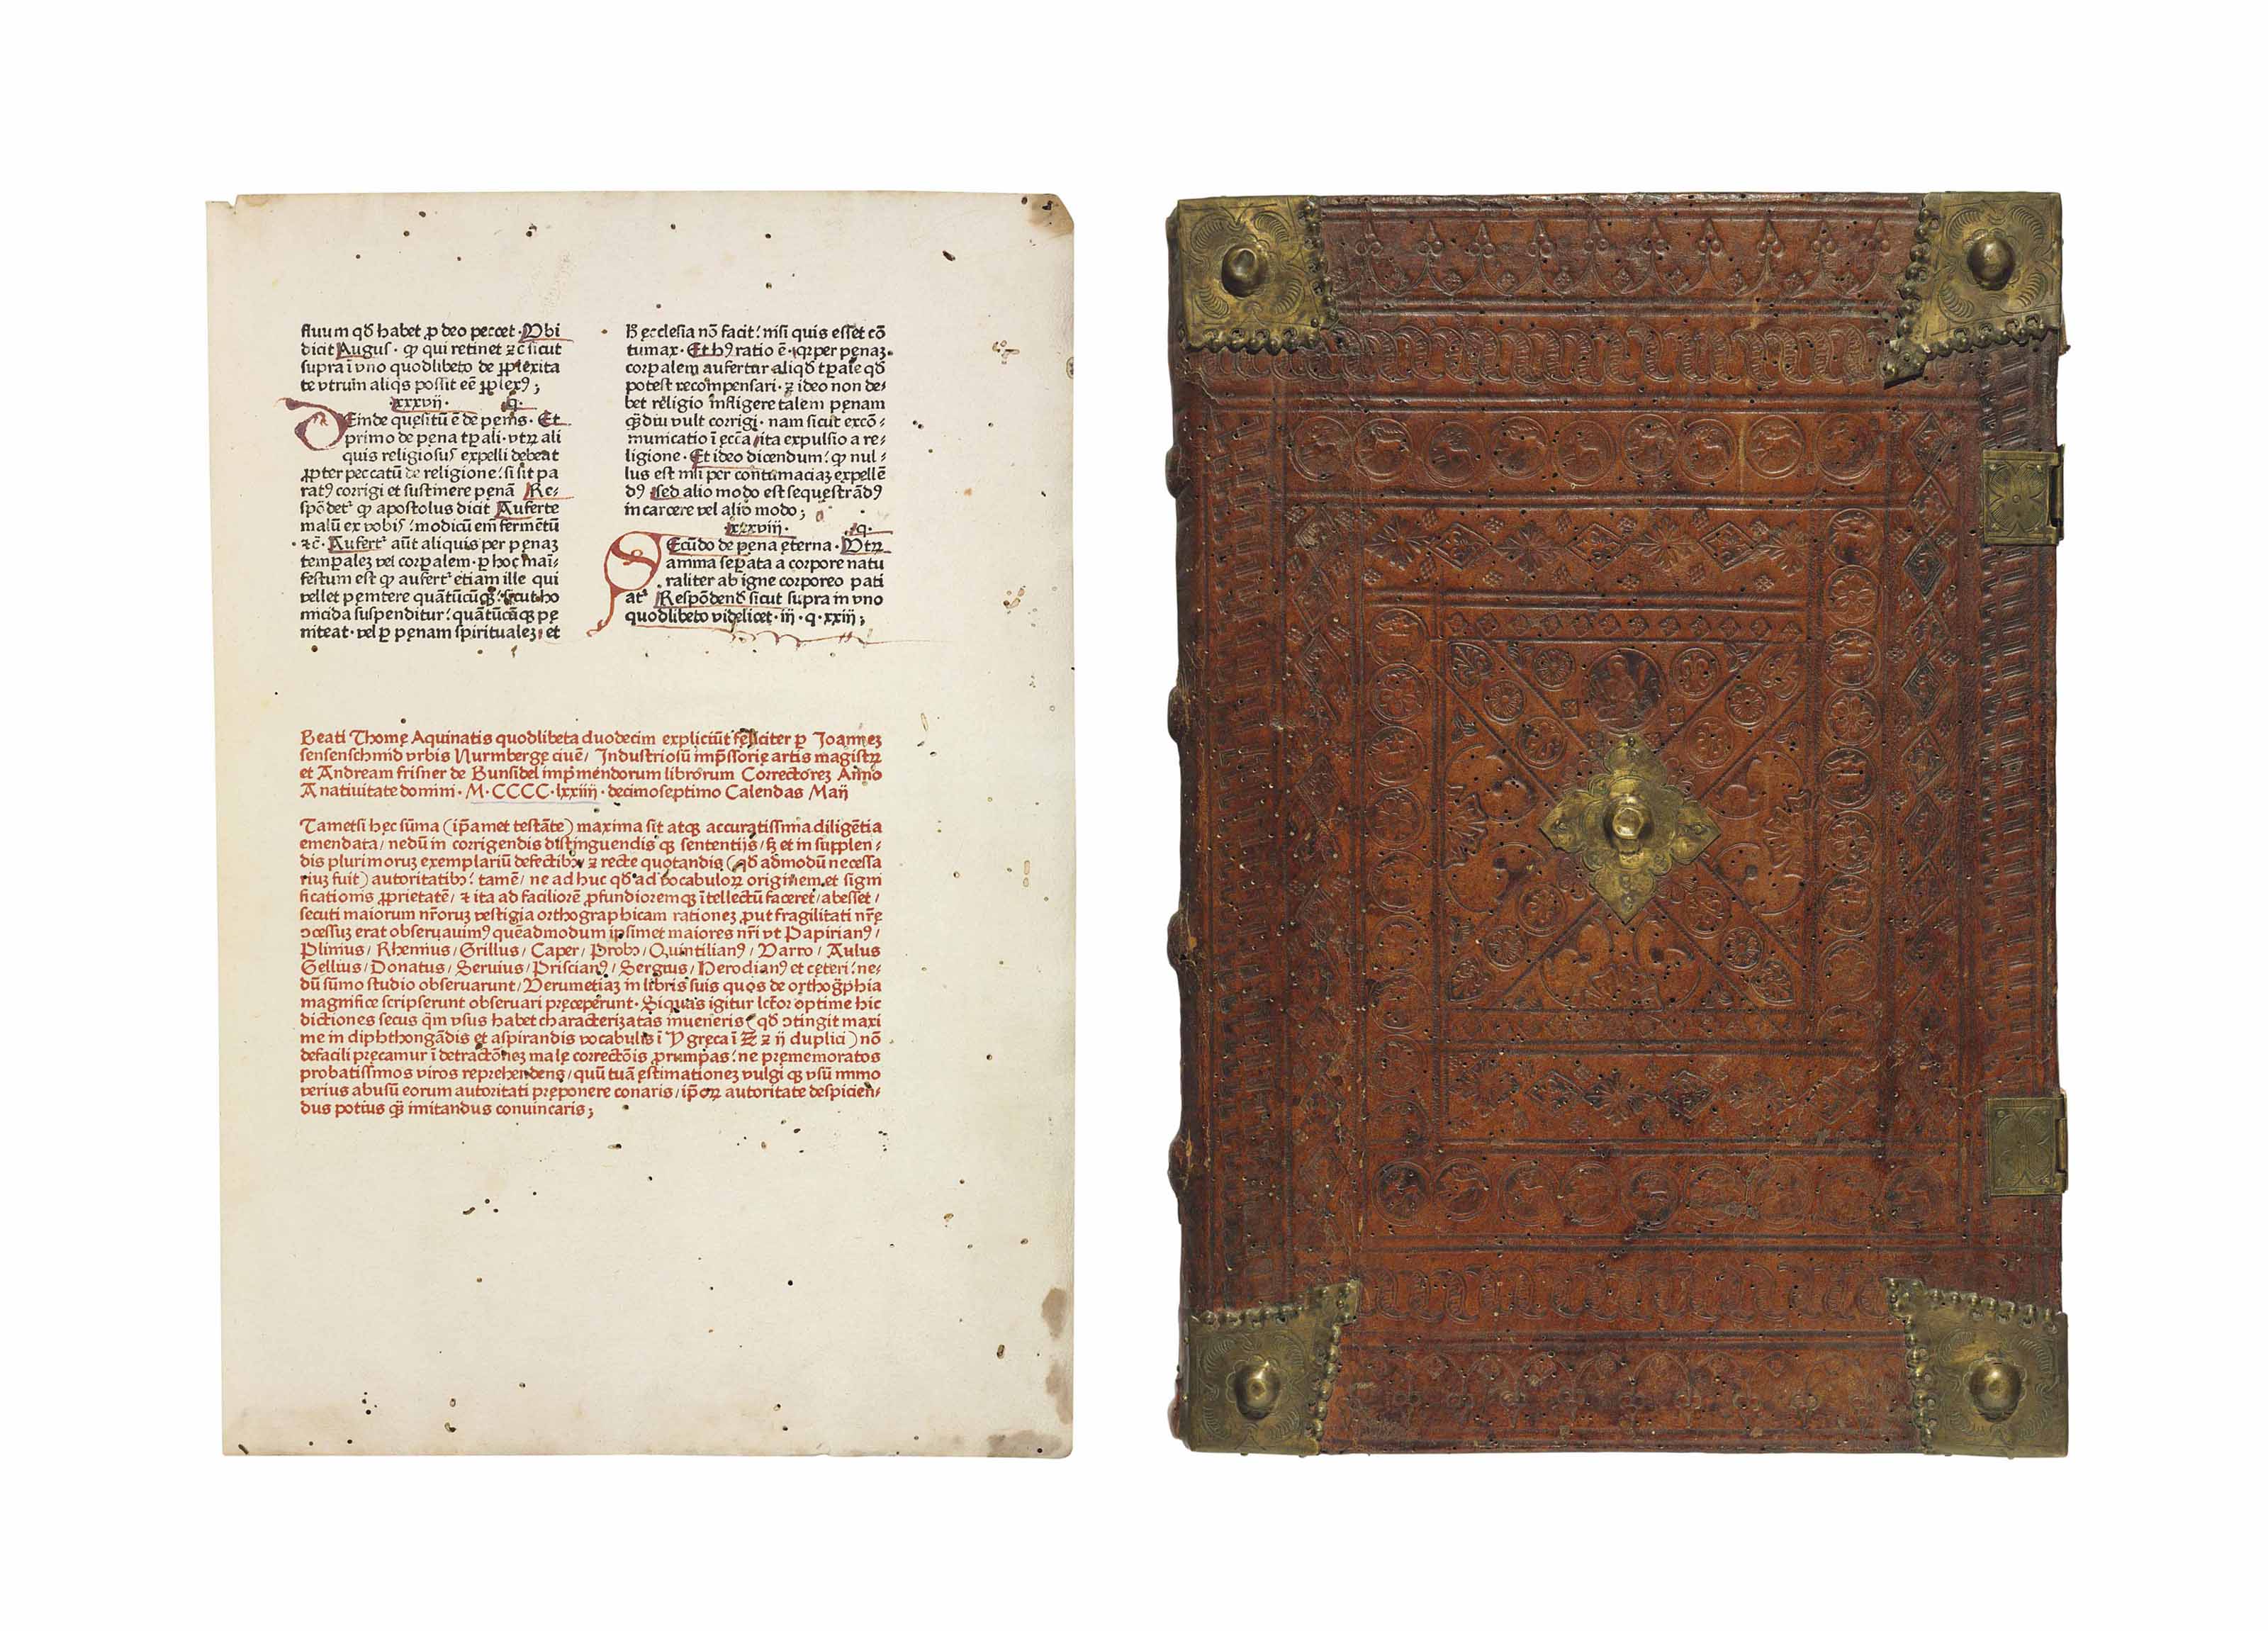 stiuum qđ habet ꝓ deo peccet · Vbi
dicit Augus̉ · ꝙ qui retinet ⁊c̄ sicut
supra ī vno quodlibeto de ꝑplexita
te vtrum aliq̉s possit eē ꝑplexꝰ;
·xxxvij· ·q·
DEinde quęsitū ē de pęnis · Et
primo de pęna tꝑali · vtꝝ ali
quis religiosus expelli debeat
ꝓpter peccatū de religione: si sit pa
ratꝰ corrigi et sustinere pęnā Re⸗
spōdet᷑ ꝙ apostolus dicit Auferte
malū ex vobis: modicū em̄ fermētū
·⁊c̄· Aufert᷑ aūt aliquis per pęnaꝫ
temꝑaleꝫ vel corꝑalem · ꝑ hoc maī⸗
festum est ꝙ aufert᷑ etiam ille qui
vellet pęnitere quātūcūqꝫ · sicut ho
micida suspenditur: quātūcūqꝫ pę
niteat · vel ꝑ pęnam spiritualeꝫ · et
h̄ ecclesia nō facit: nisi quis esset cō
tumax · Et hꝰ ratio ē · qꝛ per pęnaꝫ
corꝑalem aufertur aliqđ tꝑale qđ
potest recompensari · ⁊ ideo non de⸗
bet religio infligere talem pęnam
q̄diu vult corrigi · nam sicut excō⸗
municatio ī ecc̄a ita expulsio a re⸗
ligione · Et ideo dicendum: ꝙ nul⸗
lus est nisi per contumaciaꝫ expellē
dꝰ sed alio modo est sequestrādꝰ
in carcere vel alio modo;
·xxxviii· ·q·
SEcūdo de pęna ęterna · Vtꝝ
anima seꝑata a corpore natu
raliter ab igne corporeo pati
at᷑ Respōdend̄ sicut supra in vno
quodlibeto videlicet · iij · q · xxiij;
Beati Thomę Aquinatis quodlibeta duodecim expliciūt feliciter ꝑ Joanneꝫ
sensenschmid vrbis Nurmbergę ciuē/ Industriosū imp̄ssorię artis magistꝝ
et Andream frisner de Bunsidel imp̄mendorum librorum Correctoreꝫ Anno
A natiuitate domini · M·CCCC·lxxiiij · decimoseptimo Calendas Maij
Tametsi hęc sūma (ip̄amet testāte) maxima sit atqꝫ accuratissima diligētia
emendata/ nedū in corrigendis distinguendis qꝫ sententijs/ sꝫ et in supplen⸗
dis plurimoruꝫ exemplariū defectibꝯ ⁊ recte quotandis (qđ admodū necessa
riuꝫ fuit) autoritatibꝯ: tamē/ ne ad huc qđ ad vocabuloꝝ originem et signi
ficationis ꝓprietatē/ ⁊ ita ad faciliorē ꝓfundioremqꝫ ītellectū faceret/ abesset/
secuti maiorum nr̄oruꝫ vestigia orthographicam rationeꝫ ꝓut fragilitati nr̄ę
ↄcessuꝫ erat obseruauimꝰ quēadmodum ipsimet maiores nr̄i vt Papirianꝰ/
Plinius/ Rhemius/ Grillus/ Caper/ Probꝯ/ Quintilianꝰ/ Varro/ Aulus
Gellius/ Donatus/ Seruius/ Priscianꝰ/ Sergius/ Herodianꝰ et cęteri: ne⸗
dū sūmo studio obseruarunt/ Verumetiaꝫ in libris suis quos de orthogᷓphia
magnifice scripserunt obseruari pręcęperunt · Si quas igitur lc̄toꝛ optime hic
dictiones secus q̄m vsus habet characterizatas inueneris (qđ ↄtingit maxi
me in diphthongādis et aspirandis vocabulis ī Y gręca ī Z ⁊ ij duplici) nō
defacili pręcamur ī detractōneꝫ malę correctōis ꝓrumpas: ne pręmemoratos
probatissimos viros reprehendens/ quū tuā ęstimationeꝫ vulgi qꝫ vsū immo
verius abusū eorum autoritati pręponere conaris/ ip̄oꝝ autoritate despicien⸗
dus potius q̄ꝫ imitandus conuincaris;